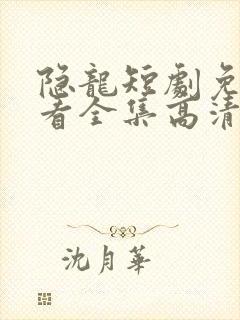 隐龍短劇免
看全集高清
沈月華